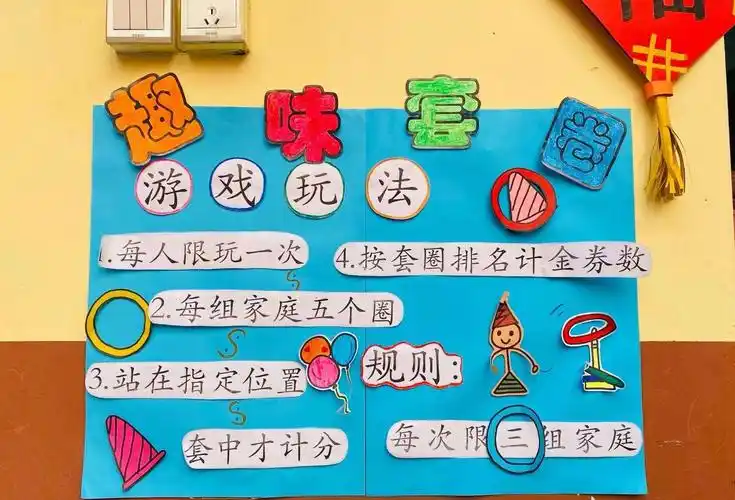 趣味套圈
游戏玩法
1.每人限玩一次
2.每组家庭五个圈
3.站在指定位置
套中才计分
4.按套圈排名计金券数
规则:
每次限三组家庭